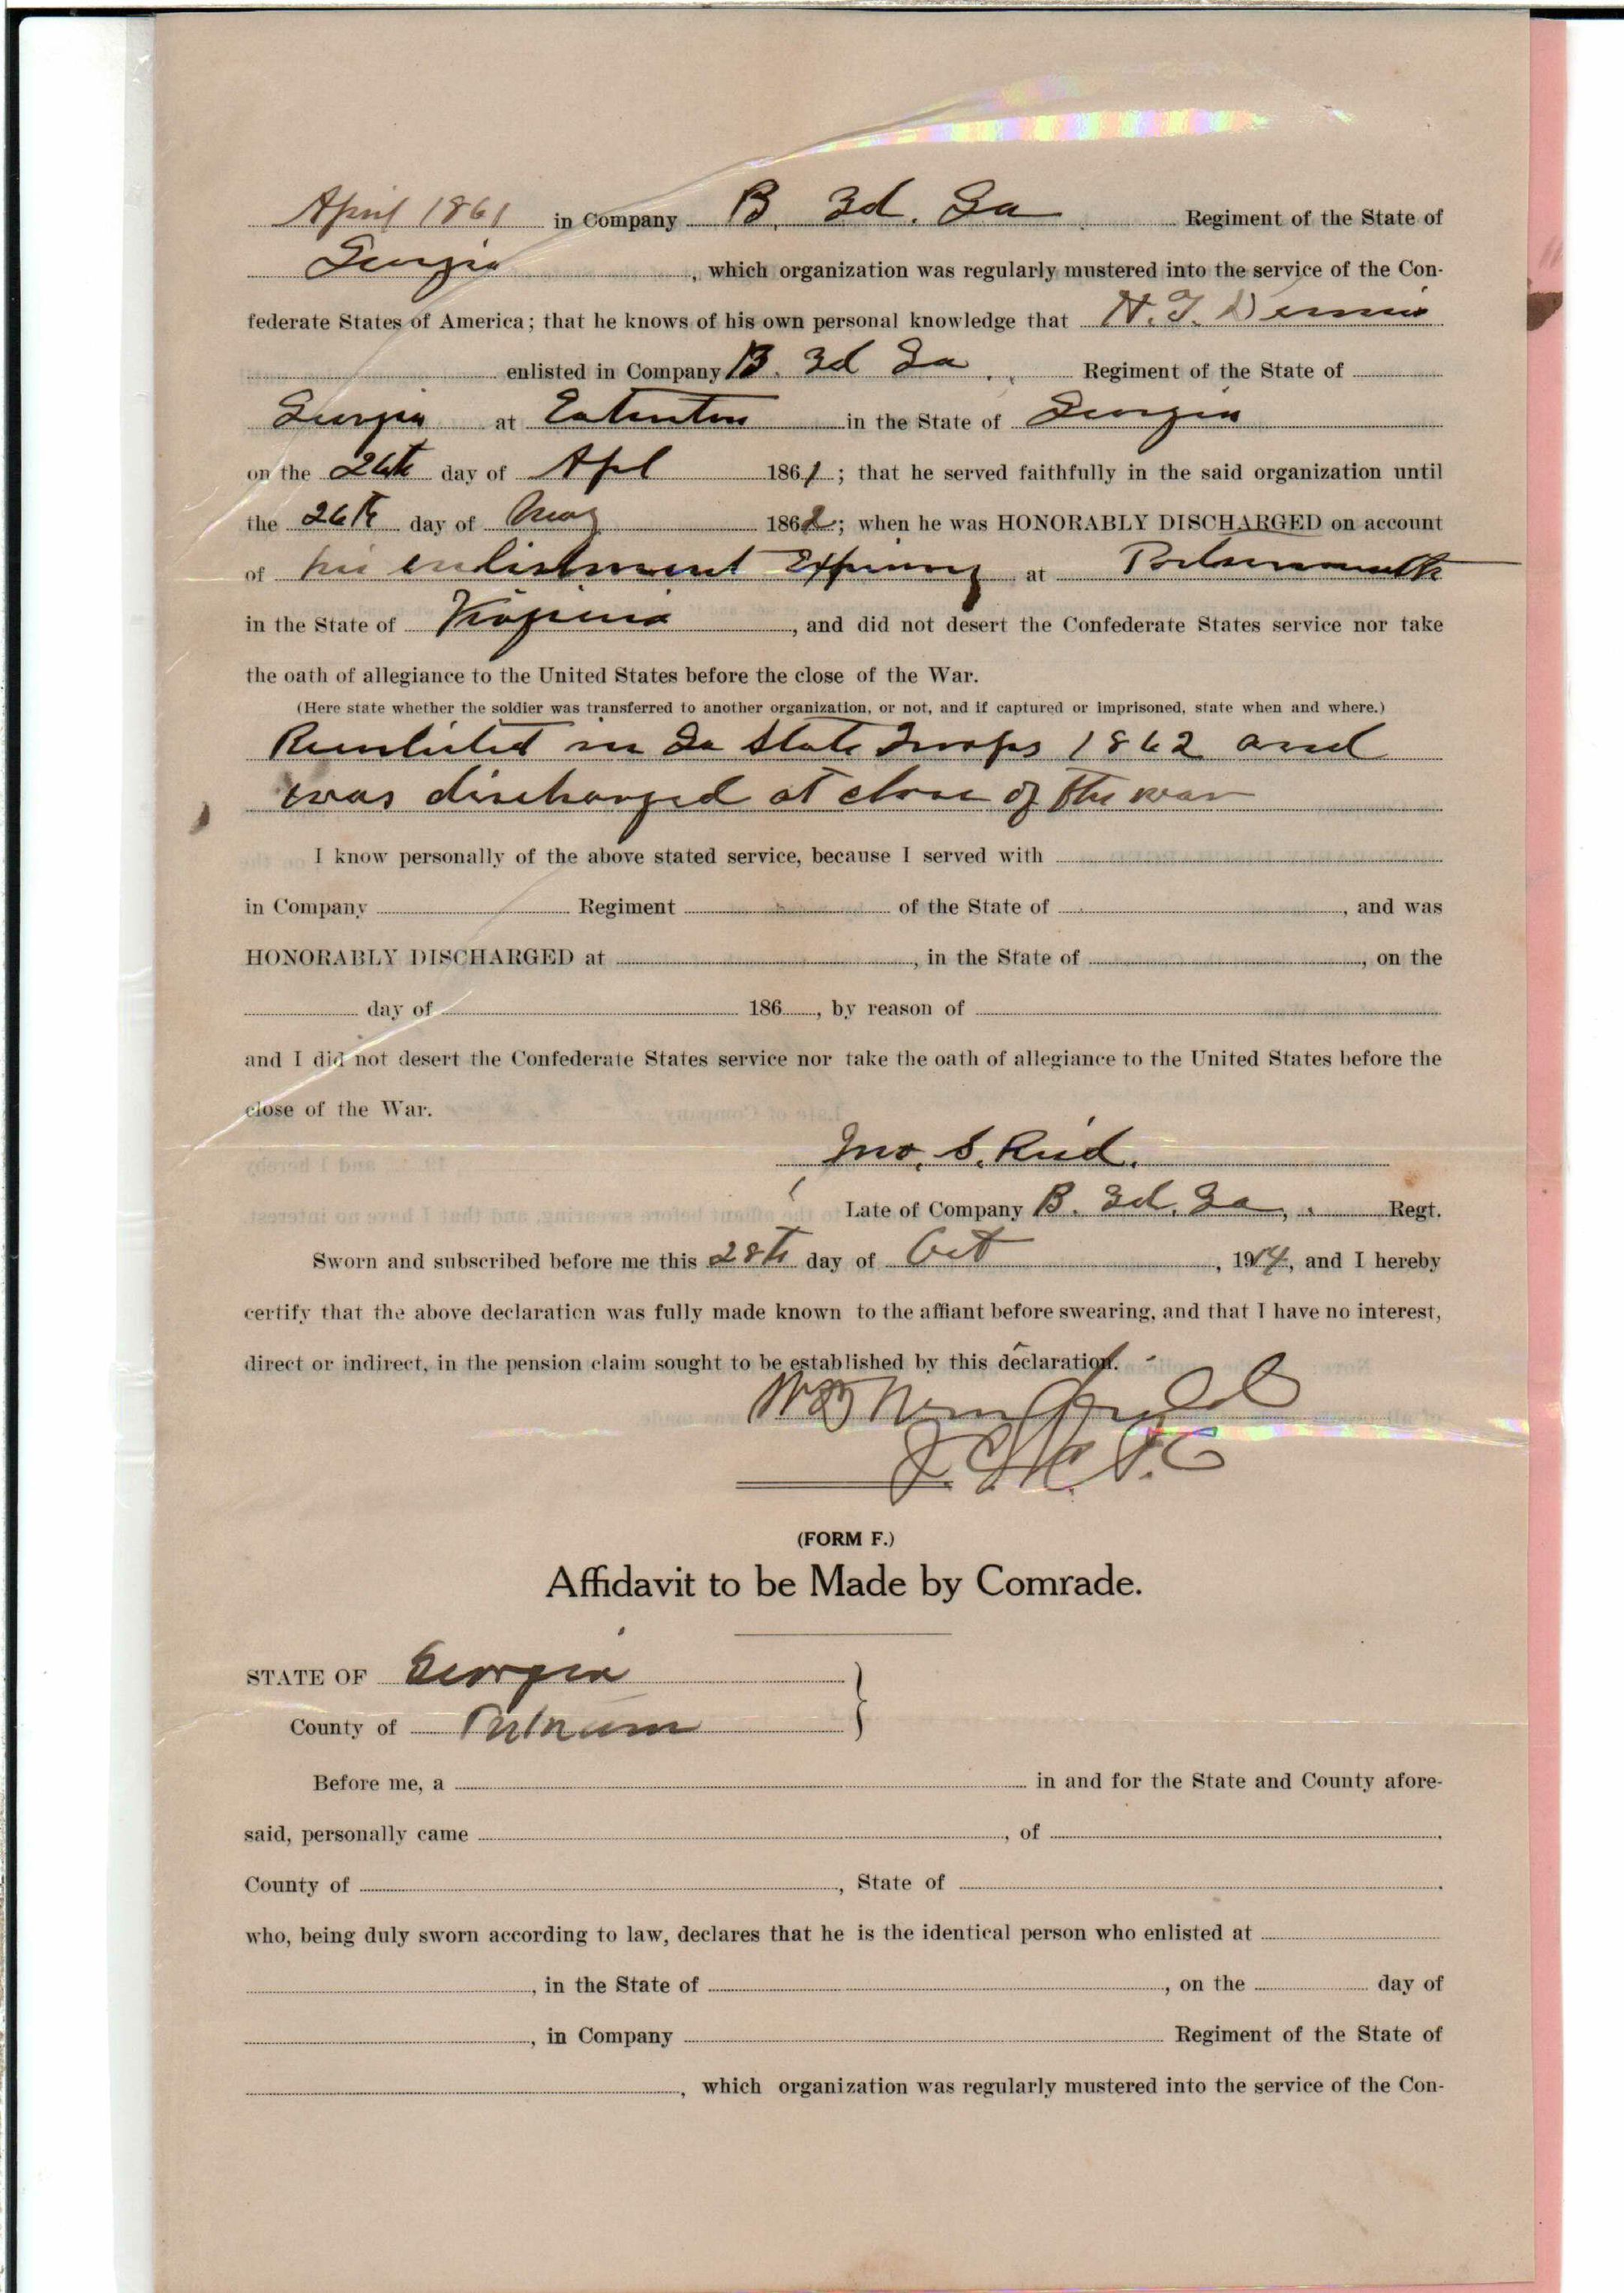 April 1861 in Company B, 3d. Ga Regiment of the State of
Georgia, which organization was regularly mustered into the service of the Con-
federate States of America; that he knows of his own personal knowledge that N. T. Dennis
enlisted in Company B. 3d Ga. Regiment of the State of
Georgia at Eatonton in the State of Georgia
on the 26th day of Apl 1861; that he served faithfully in the said organization until
the 26th day of May 1862; when he was HONORABLY DISCHARGED on account
of his enlistment Expiring at Portsmouth
in the State of Virginia, and did not desert the Confederate States service nor take
the oath of allegiance to the United States before the close of the War.
(Here state whether the soldier was transferred to another organization, or not, and if captured or imprisoned, state when and where.)
Reenlisted in Ga State Troops 1862 and
was discharged at close of the war
I know personally of the above stated service, because I served with
in Company Regiment of the State of , and was
HONORABLY DISCHARGED at , in the State of , on the
day of 186 , by reason of
and I did not desert the Confederate States service nor take the oath of allegiance to the United States before the
close of the War.
Jno. S. Reid.
Late of Company B. 3d. Ga, Regt.
Sworn and subscribed before me this 28th day of Oct , 1914, and I hereby
certify that the above declaration was fully made known to the affiant before swearing, and that I have no interest,
direct or indirect, in the pension claim sought to be established by this declaration.
(FORM F.)
Affidavit to be Made by Comrade.
STATE OF Georgia
County of Putnam
Before me, a in and for the State and County afore-
said, personally came , of .
County of , State of .
who, being duly sworn according to law, declares that he is the identical person who enlisted at
, in the State of , on the day of
, in Company Regiment of the State of
, which organization was regularly mustered into the service of the Con-